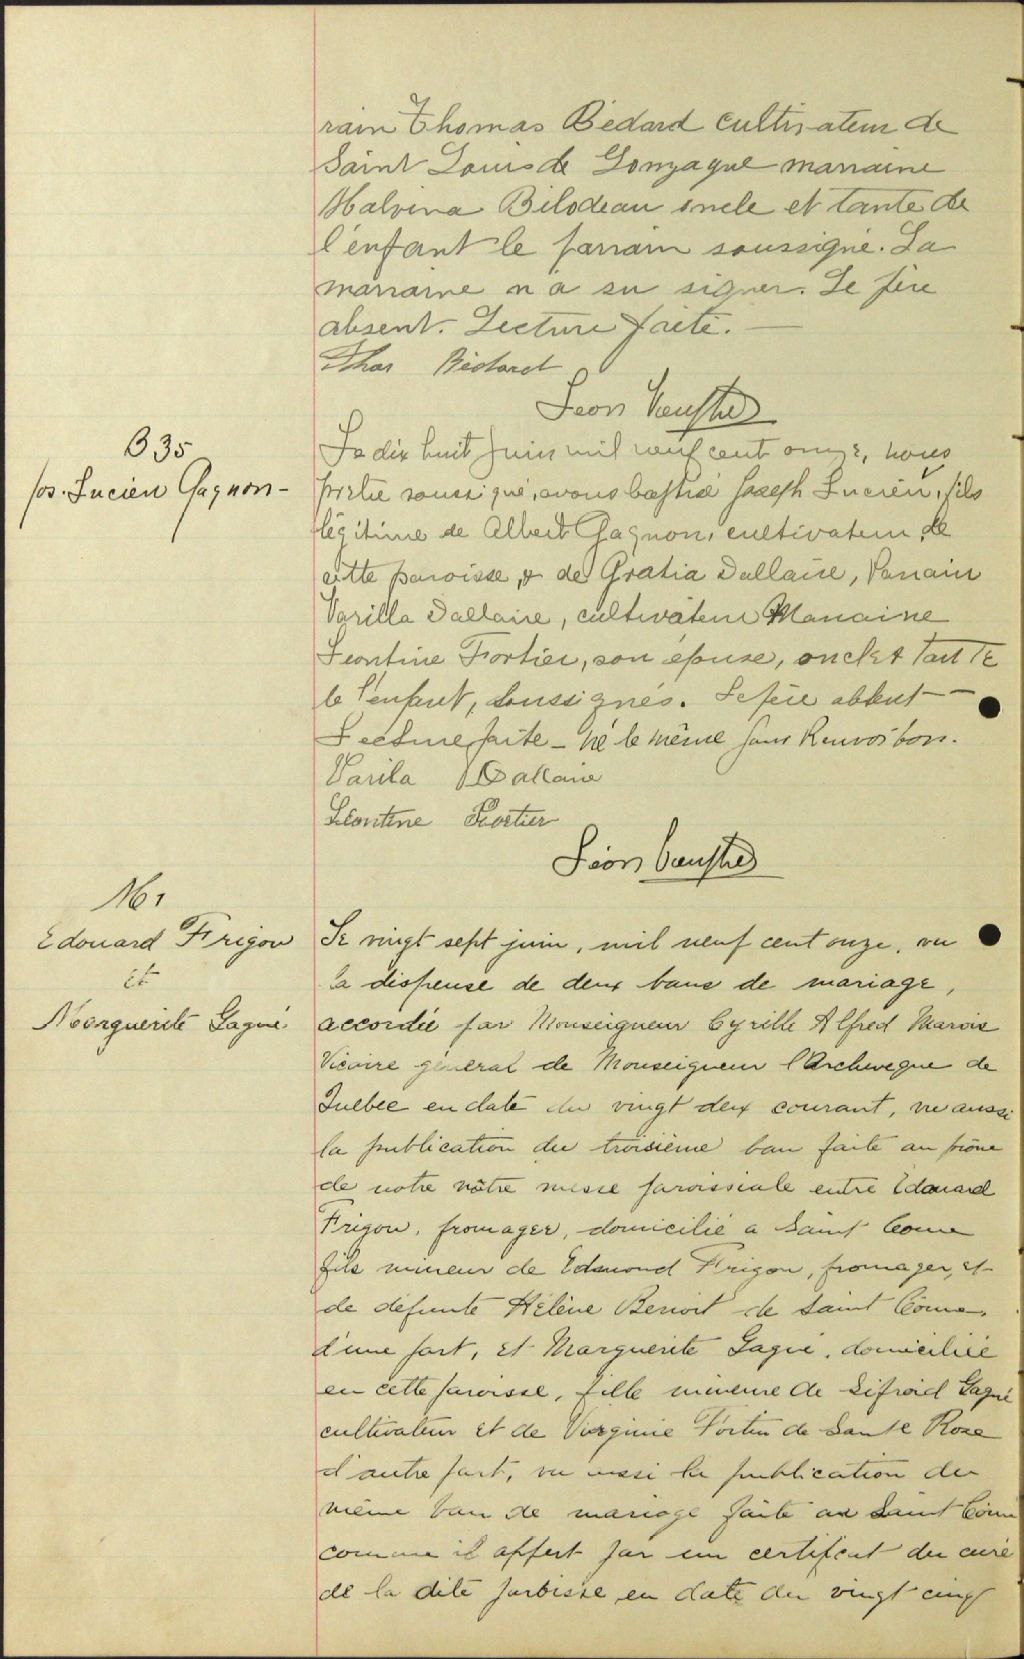 rain Thomas Bédard cultivateur de
Saint Louis de Gonzague marraine
Malvina Bilodeau oncle et tante de
l'enfant le parrain soussigné. La
marraine n'a su signer. Le père
absent. Lecture faite.
Thos Bédard
Léon
B 35
Jos. Lucien Gagnon
Le dix huit juin mil neuf cent onze, nous
prêtre soussigné, avons baptisé Joseph Lucien, fils
légitime de Albert Gagnon, cultivateur de
cette paroisse, & de Gratia Dallaire, Parrain
Varilla Dallaire, cultivateur Marraine
Léontine Fortier, son épouse, oncle & tante
de l'enfant, soussignés. Le père absent
Lecture faite - né le même jour Renvoi bon.
Varila Dallaire
Léontine Fortier
Léon
M 1
Edouard Frigon
et
Marguerite Gagné
Le vingt sept juin, mil neuf cent onze, vu
la dispense de deux bans de mariage,
accordée par Monseigneur Cyrille Alfred Marois
Vicaire général de Monseigneur l'Archevêque de
Québec en date du vingt deux courant, vu aussi
la publication du troisième ban faite au prône
de notre nôtre messe paroissiale entre Edouard
Frigon, fromager, domicilié a Saint Come
fils mineur de Edmond Frigon, fromager, et
de défunte Hélène Benoit de Saint Côme,
d'une part, et Marguerite Gagné, domiciliée
en cette paroisse, fille mineure de Sifroid Gagné
cultivateur et de Virginie Fortin de Sante Rose
d'autre part, vu aussi la publication du
même ban de mariage faite au Saint Côme
comme il appert par un certificat du curé
de la dite paroisse en date du vingt cinq